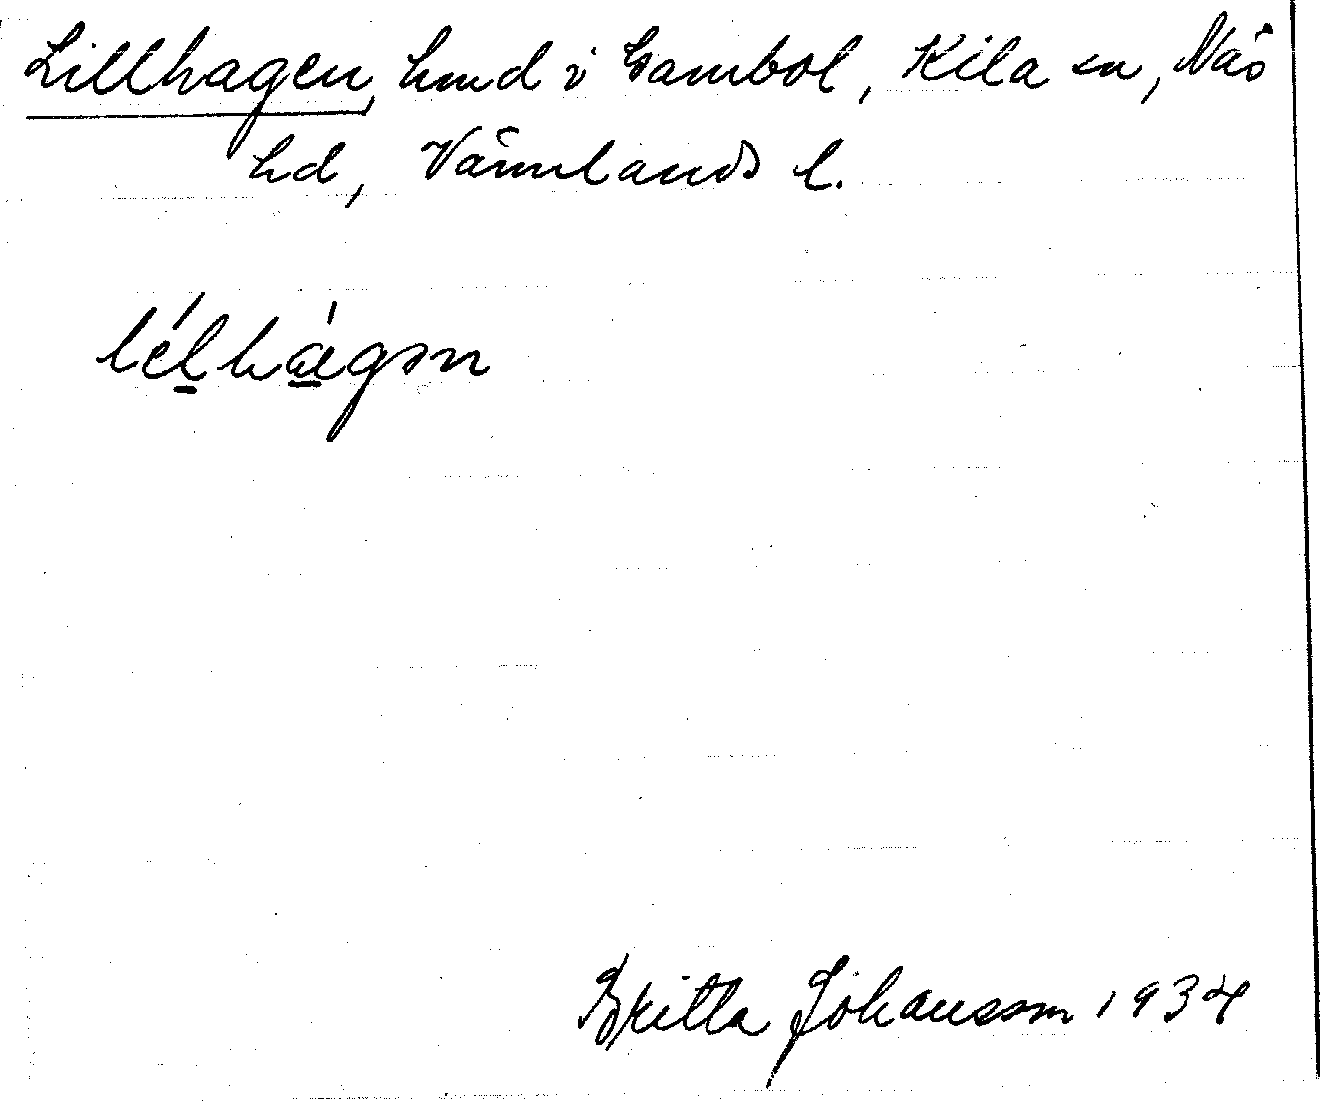 Lillhagen, hmd i Gambol, Kila sn, Näs
hd, Värmlands l.
lélhágən
Britta Johansson 1934